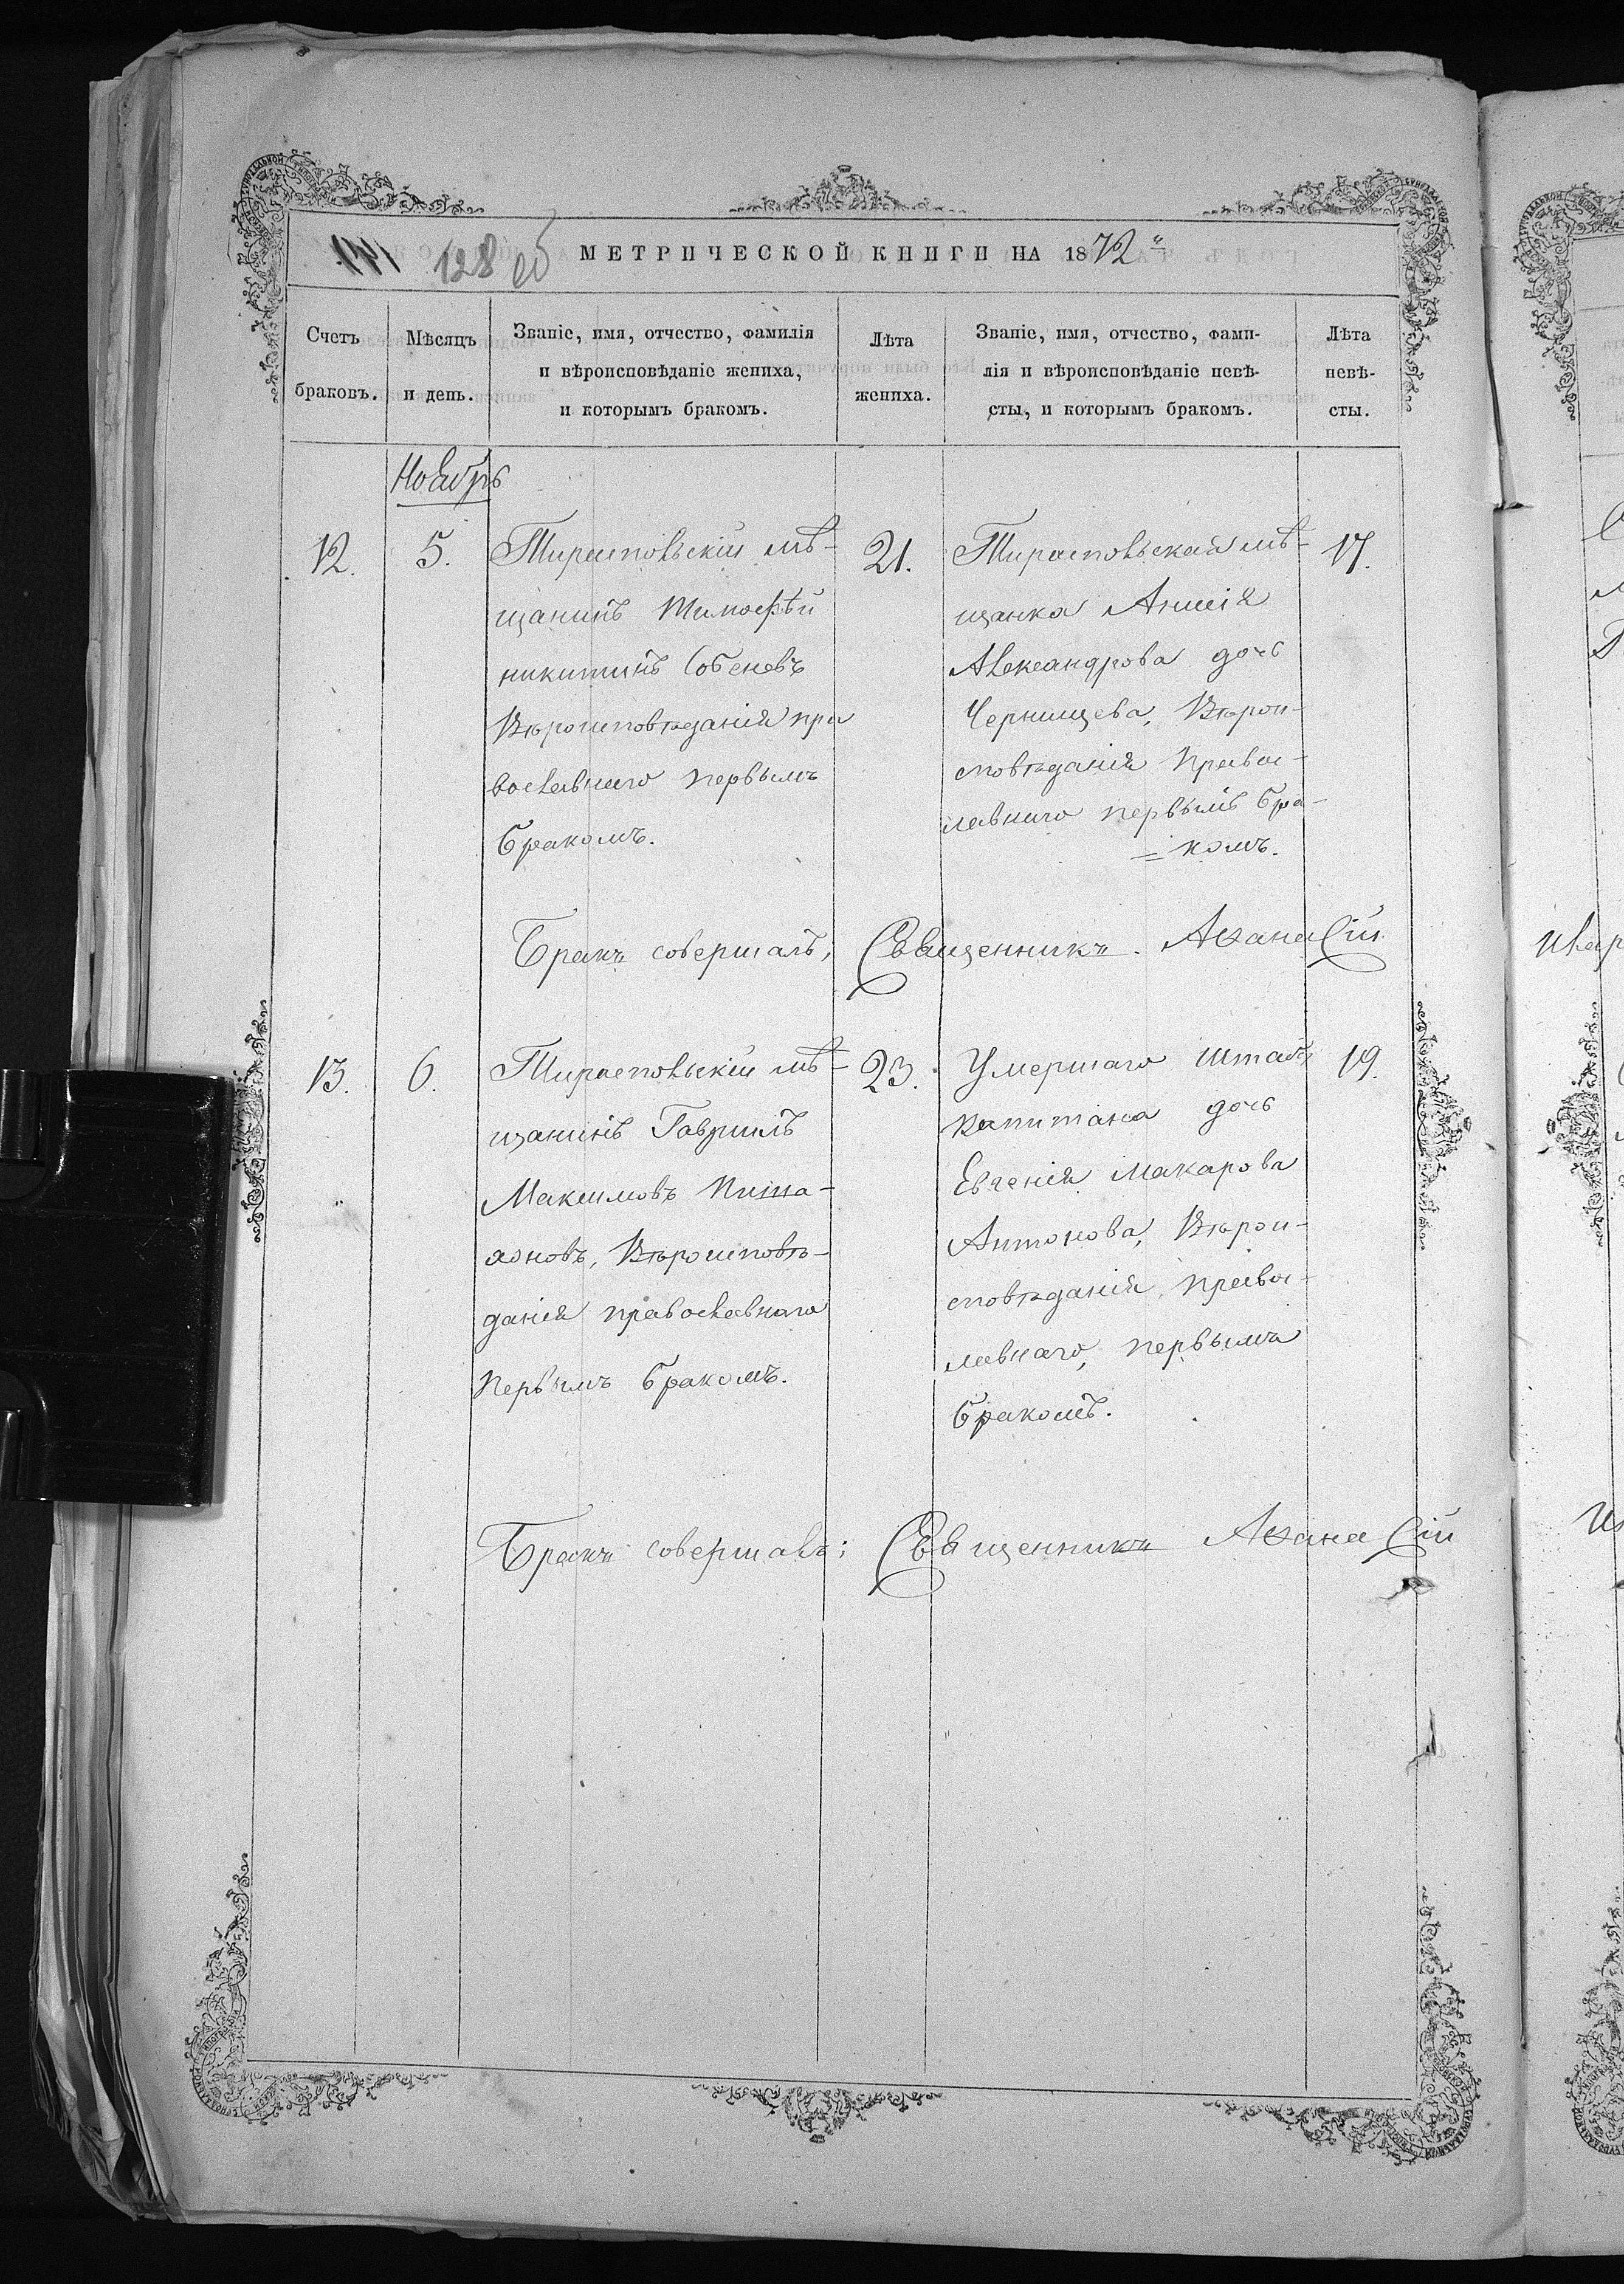 141 128 об МЕТРИЧЕСКОЙ КНИГИ НА 1872
Счетъ браковъ.
Мѣсяцъ и день.
Званіе, имя, отчество, фамилія
и вѣроисповѣданіе жениха,
и которымъ бракомъ.
Лѣта жениха.
Званіе, имя, отчество, фами-
лія и вѣроисповѣданіе невѣ-
сты, и которымъ бракомъ.
Лѣта невѣ-
сты.
Ноябрь
12. 5.
Тираспольскій мѣ-
щанинъ Тимофѣй
никитинъ Собеневъ
Вѣроисповѣданія пра
вославнаго первымъ
бракомъ.
21.
Тираспольская мѣ-
щанка Анисія
Александрова дочь
Чернищева, Вѣрои-
сповѣданія правос-
лавнаго первымъ бра-
= комъ.
17.
Бракъ совершалъ; Священникъ. Аѳанасій
13. 6.
Тираспольскій мѣ-
щанинъ Гаврилъ
Максимовъ
Вѣроисповѣ-
данія православнаго
первымъ бракомъ.
23.
Умершаго Штабъ
капитана дочь
Евгенія Макарова
Антонова, Вѣрои-
сповѣданія, правос-
лавнаго, первымъ
бракомъ.
19.
Бракъ совершалъ; Священникъ Аѳанасій